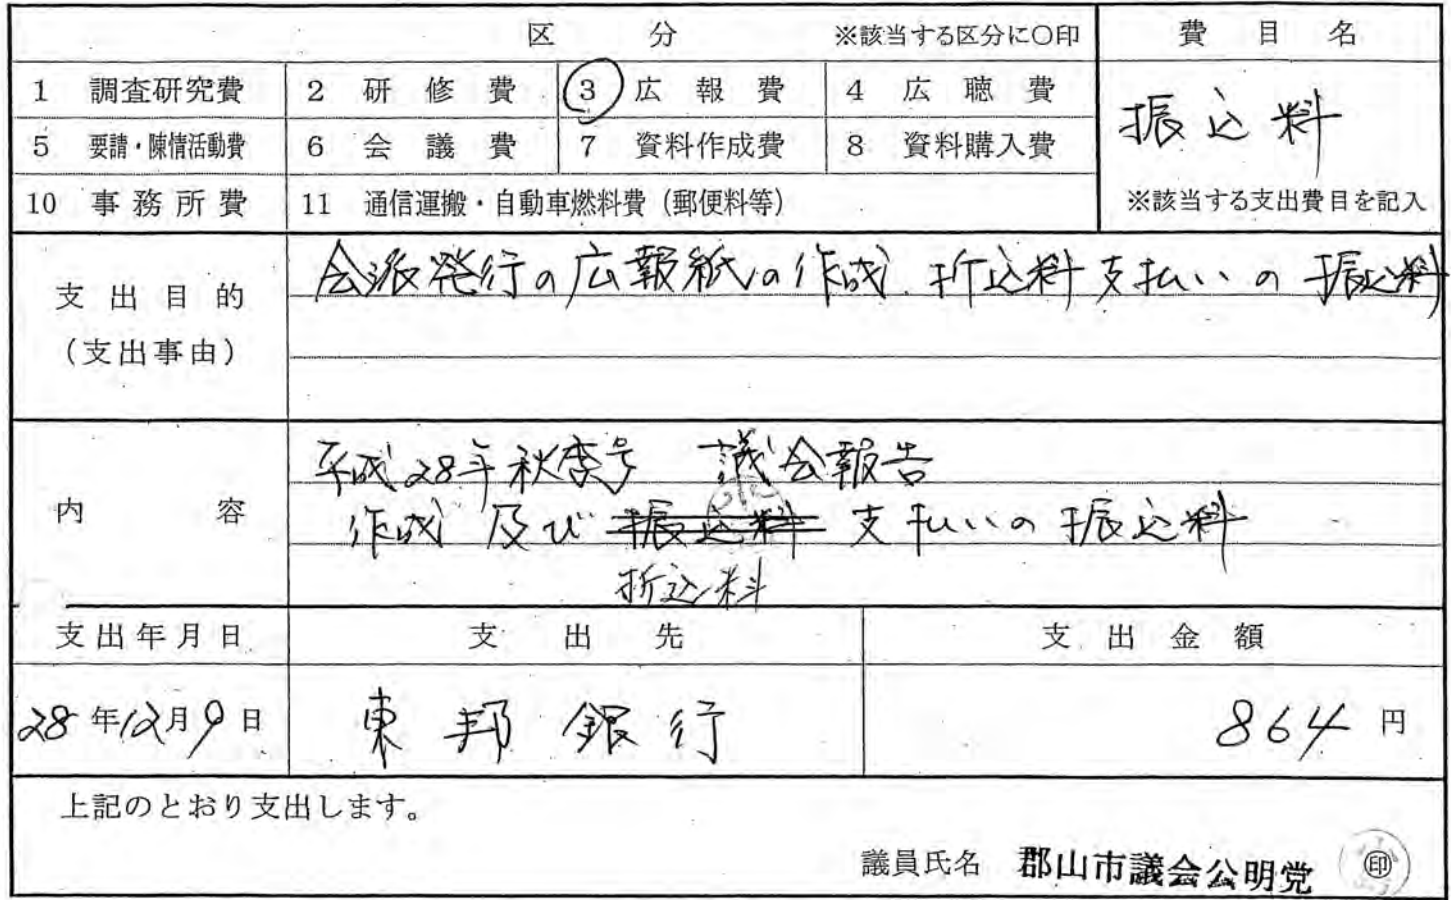 区 分 ※該当する区分に○印 費目名
1 調査研究費 2 研修費 ③ 広報費 4 広聴費
振込料
5 要請・陳情活動費 6 会議費 7 資料作成費 8 資料購入費
10 事務所費 11 通信運搬・自動車燃料費（郵便料等） ※該当する支出費目を記入
支出目的
（支出事由）
会派発行の広報紙の作成 折込料支払いの振込料
内容
平成28年秋季号 議会報告
作成 及び 振込料 支払いの振込料
折込料
支出年月日 支出先 支出金額
28年12月9日 東邦銀行 864円
上記のとおり支出します。
議員氏名 郡山市議会公明党 ㊞